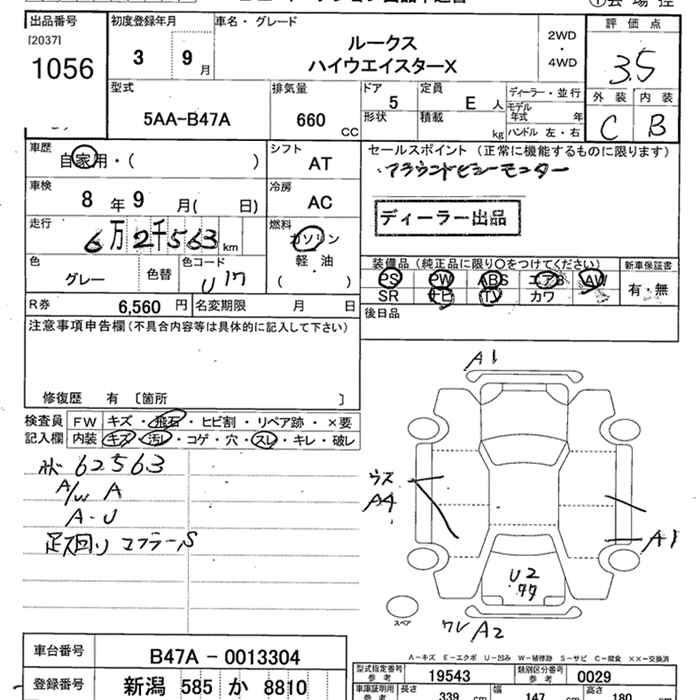 出品番号 初度登録年月 車名・グレード ①会場控
[2037] 2WD 評価点
1056 3 9月 ルークス ・ 3.5
ハイウエイスターX 4WD
型式 排気量 ドア 定員 ディーラー・並行 外装 内装
5AA-B47A 660 CC 5 E 人 モデル年式 年 C B
形状 積載 kg ハンドル 左・右
車歴 シフト セールスポイント (正常に機能するものに限ります)
自家用・( ) AT ・アラウンドビューモニター
車検 冷房
8年 9月( 日) AC ディーラー出品
走行 燃料
6万2千563 km ガソリン
色 色替 色コード 軽・油 装備品 (純正品に限り○をつけてください) 新車保証書
グレー U17 ( ) PS PW ABS エアB AW 有・無
R券 6,560 円 名変期限 月 日 SR ナビ TV カワ
注意事項申告欄(不具合内容等は具体的に記入して下さい) 後日品
修復歴 有 [箇所 ]
検査員 FW キズ・飛石・ヒビ割・リペア跡・×要
記入欄 内装 キズ・汚レ・コゲ・穴・スレ・キレ・破レ
62563
A/W A
A-U
足マ回り マフラーS
A1
ウス
A4
A1
U2
ワレ A2
スペア
A-キズ E-エクボ U-凹み W-補修跡 S-サビ C-腐食 ××-交換済
車台番号 B47A-0013304 型式指定番号 参考 19543 類別区分番号 参考 0029
登録番号 新潟 585 か 8810 車庫証明用 参考 長さ 339 幅 147 高さ 180